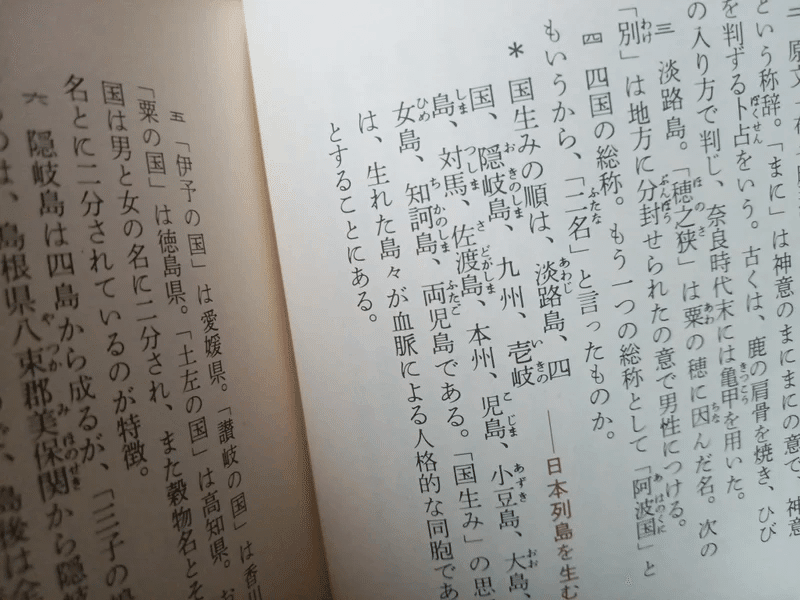 三 原文「在
という称辞。「まに」は神意のまにまにの意で、神意
を判ずる卜占をいう。古くは、鹿の肩骨を焼き、ひび
の入り方で判じ、奈良時代末には亀甲を用いた。
三 淡路島。「穂之狭」は粟の穂に因んだ名。次の
「別」は地方に分封せられたの意で男性につける。
四 四国の総称。もう一つの総称として「阿波国」と
もいうから、「二名」と言ったものか。
――日本列島を生む
* 国生みの順は、淡路島、四
国、隠岐島、九州、壱岐
島、対馬、佐渡島、本州、児島、小豆島、大島、
女島、知訶島、両児島である。「国生み」の思
は、生れた島々が血脈による人格的な同胞であ
とすることにある。
五 「伊予の国」は愛媛県。「讃岐の国」は香川
「粟の国」は徳島県。「土左の国」は高知県。お
国は男と女の名に二分され、また穀物名とそ
名とに二分されているのが特徴。
六 隠岐島は四島から成るが、「三子の島
ものは、島根県八束郡美保関から隠岐
島後は全